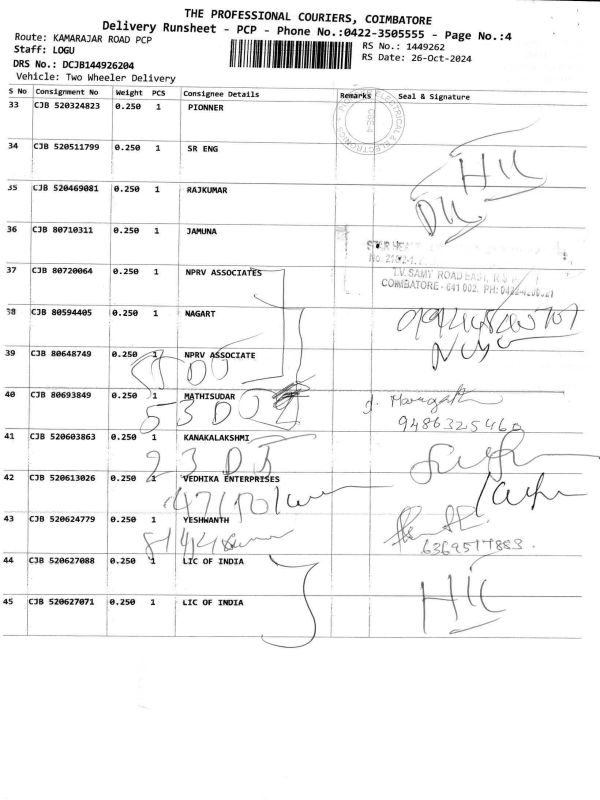 THE PROFESSIONAL COURIERS, COIMBATORE
Delivery Runsheet - PCP - Phone No.:0422-3505555 - Page No.:4
Route: KAMARAJAR ROAD PCP
RS No.: 1449262
Staff: LOGU
RS Date: 26-Oct-2024
DRS No.: DCJB144926204
Vehicle: Two Wheeler Delivery
S No Consignment No Weight PCS Consignee Details Remarks Seal & Signature
33 CJB 520324823 0.250 1 PIONNER
34 CJB 520511799 0.250 1 SR ENG
35 CJB 520469081 0.250 1 RAJKUMAR
36 CJB 80710311 0.250 1 JAMUNA
37 CJB 80720064 0.250 1 NPRV ASSOCIATES
T.V. SAMY ROAD EAST, R.S
COIMBATORE - 641 002. PH:
38 CJB 80594405 0.250 1 NAGART
39 CJB 80648749 0.250 1 NPRV ASSOCIATE
40 CJB 80693849 0.250 1 MATHISUDAR
9486325460
41 CJB 520603863 0.250 1 KANAKALAKSHMI
42 CJB 520613026 0.250 1 VEDHIKA ENTERPRISES
43 CJB 520624779 0.250 1 YESHWANTH
44 CJB 520627088 0.250 1 LIC OF INDIA
45 CJB 520627071 0.250 1 LIC OF INDIA